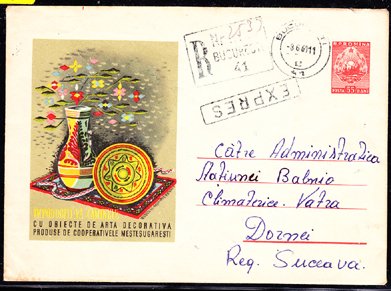 R
Nr 2537
BUCUREȘTI
41
EXPRES
R.P.ROMINA
POSTA 55 BANI
ÎMPODOBIȚI-VĂ CĂMINUL
CU OBIECTE DE ARTA DECORATIVA
PRODUSE DE COOPERATIVELE MESTESUGARESTI
Către Administrația
Stațiunei Balnio
Climaterice. Vatra
Dornei
Reg. Suceava.